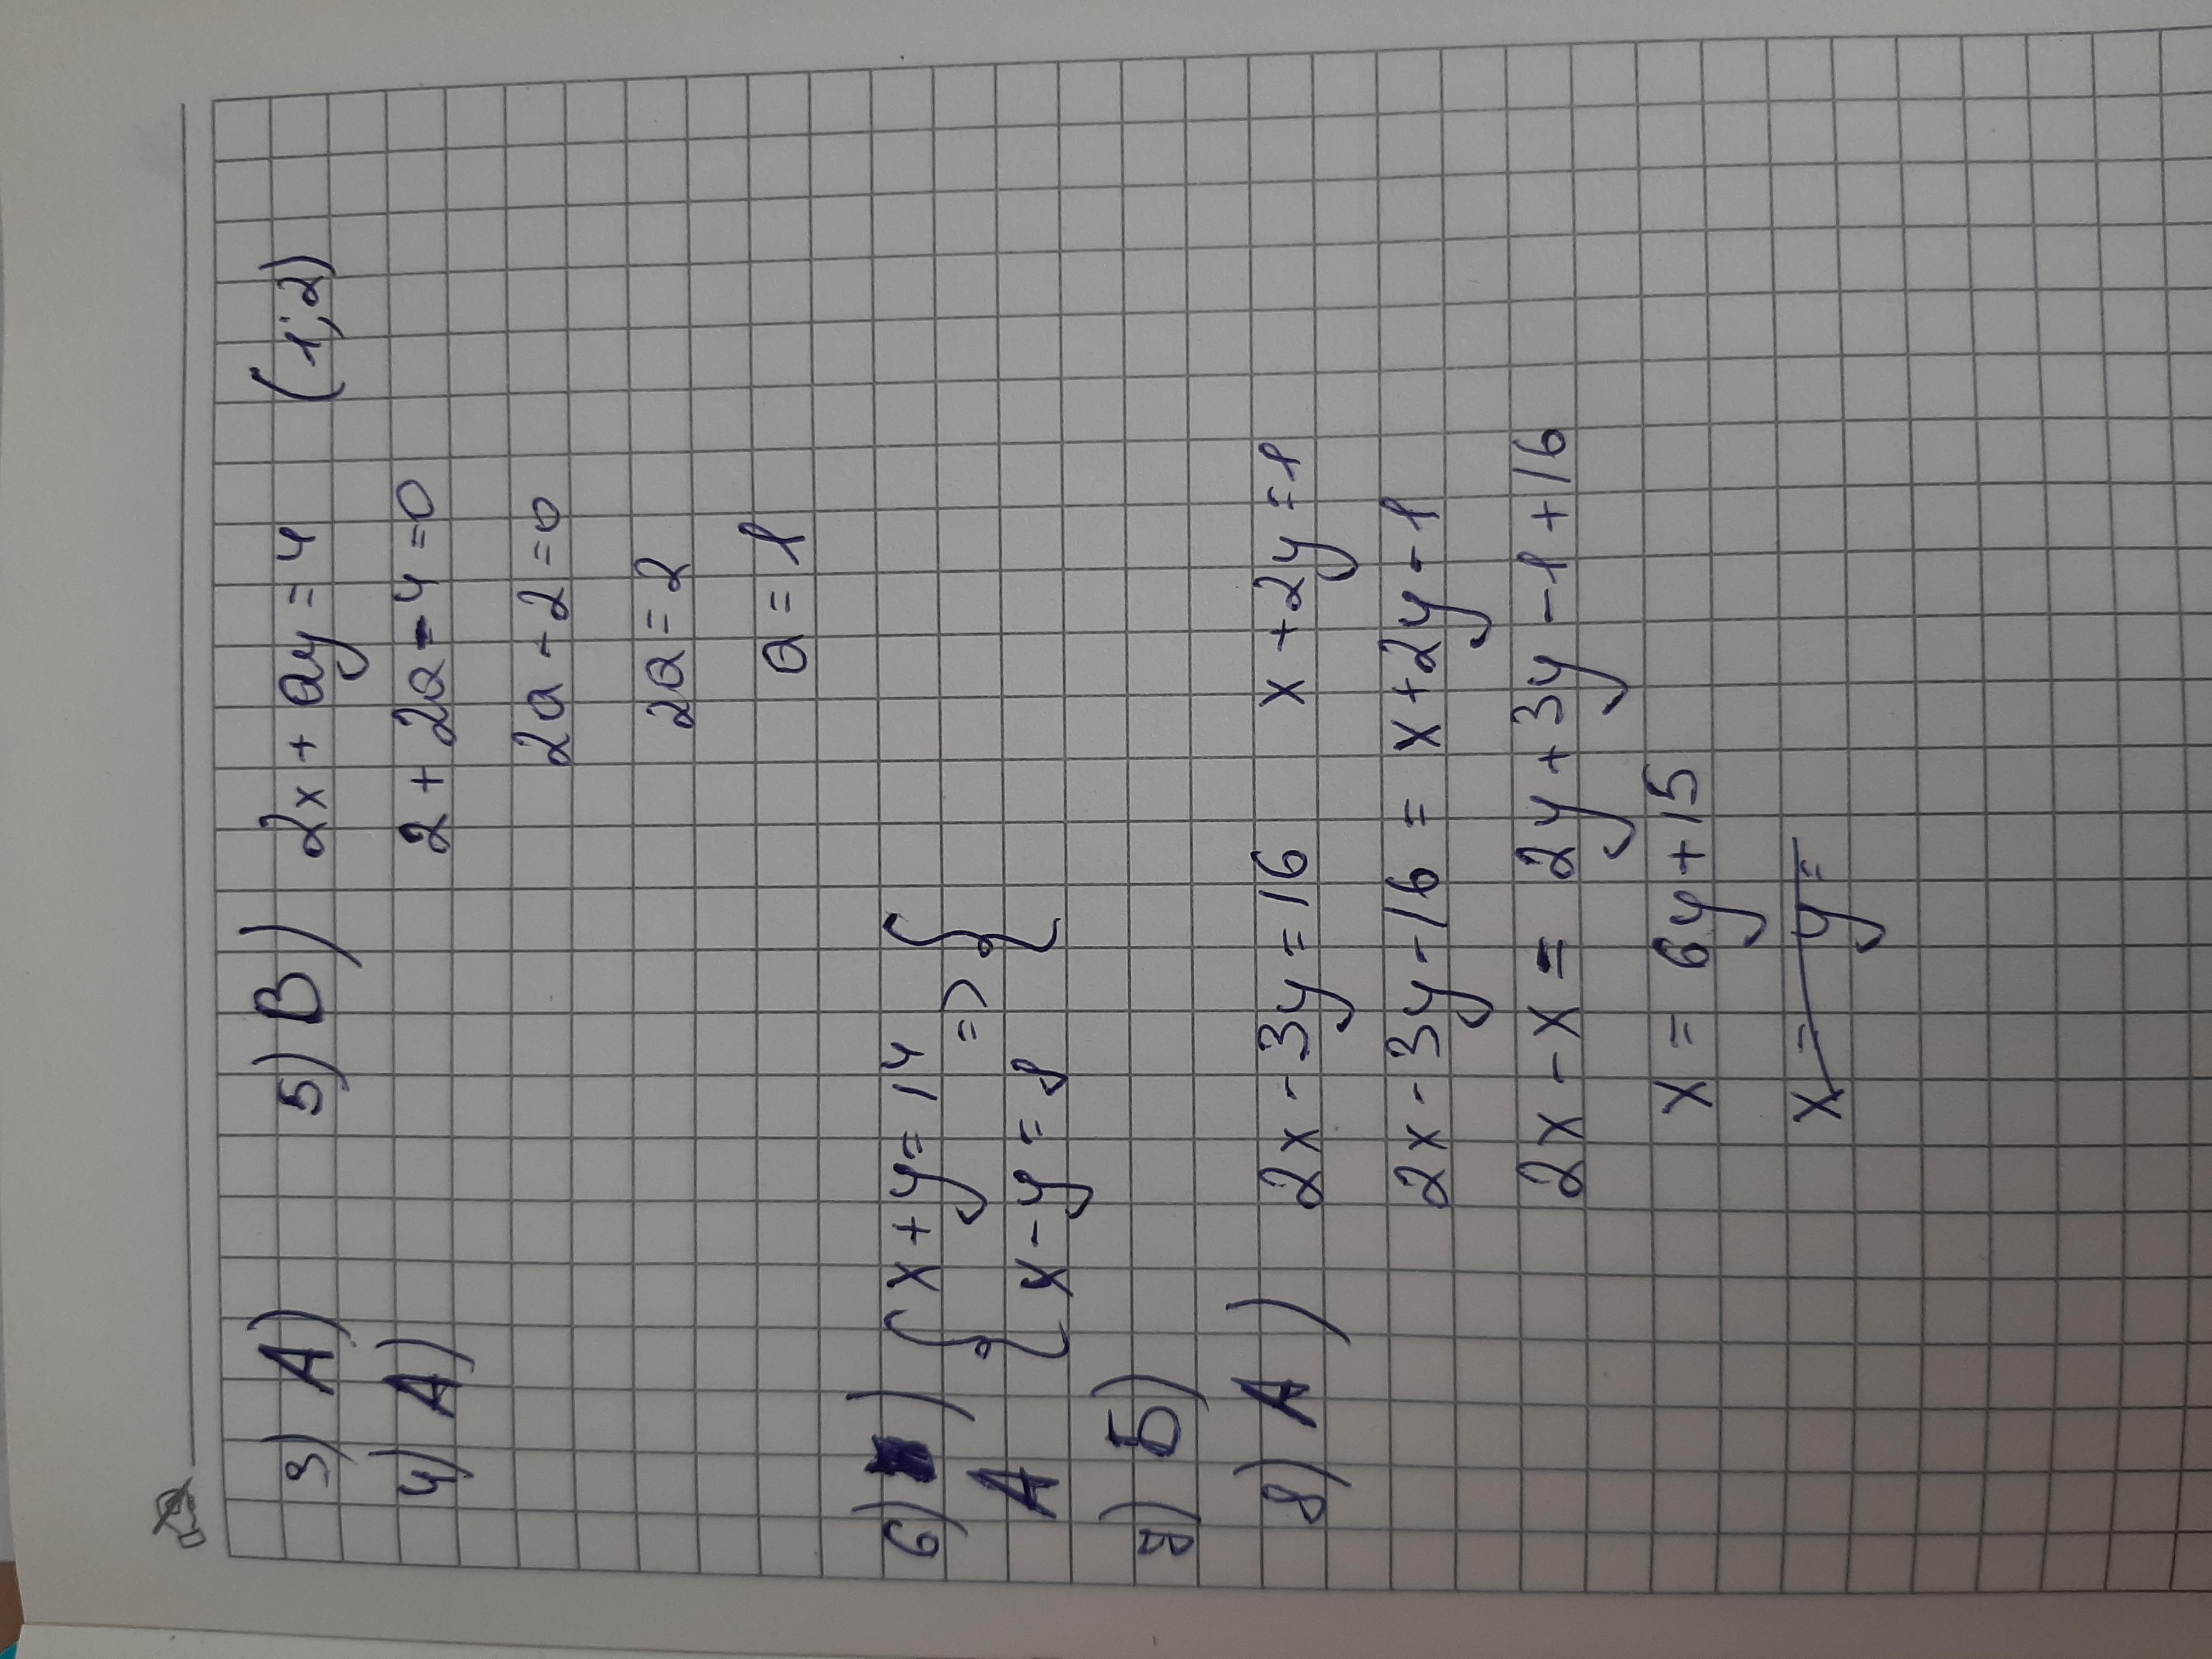 3) А) 5) В) 2x + ay = 4 (1; 2)
4) А) 2 + 2a - 4 = 0
2a - 2 = 0
2a = 2
a = 1
6) ) { x + y = 14
А { x - y = 8 => {
7) Б)
8) А) 2x - 3y = 16 x + 2y = 1
2x - 3y - 16 = x + 2y - 1
2x - x = 2y + 3y - 1 + 16
x = 6y + 15
x = y =